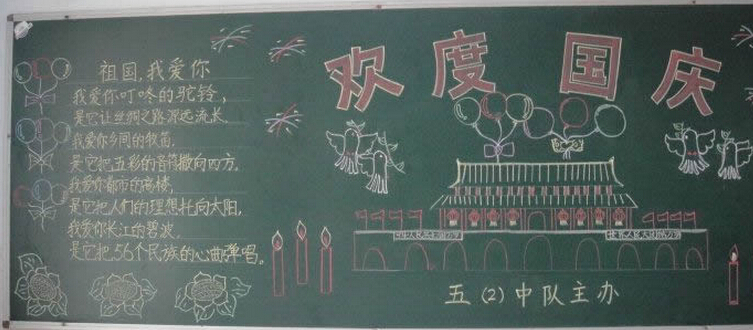 欢度国庆
祖国，我爱你
我爱你叮咚的驼铃，
是它让丝绸之路源远流长。
我爱你乡间的牧笛，
是它把五彩的音符撒向四方。
我爱你都市的高楼，
是它把人们的理想托向太阳，
我爱你长江的碧波，
是它把56个民族的心曲弹唱。
五（2）中队主办